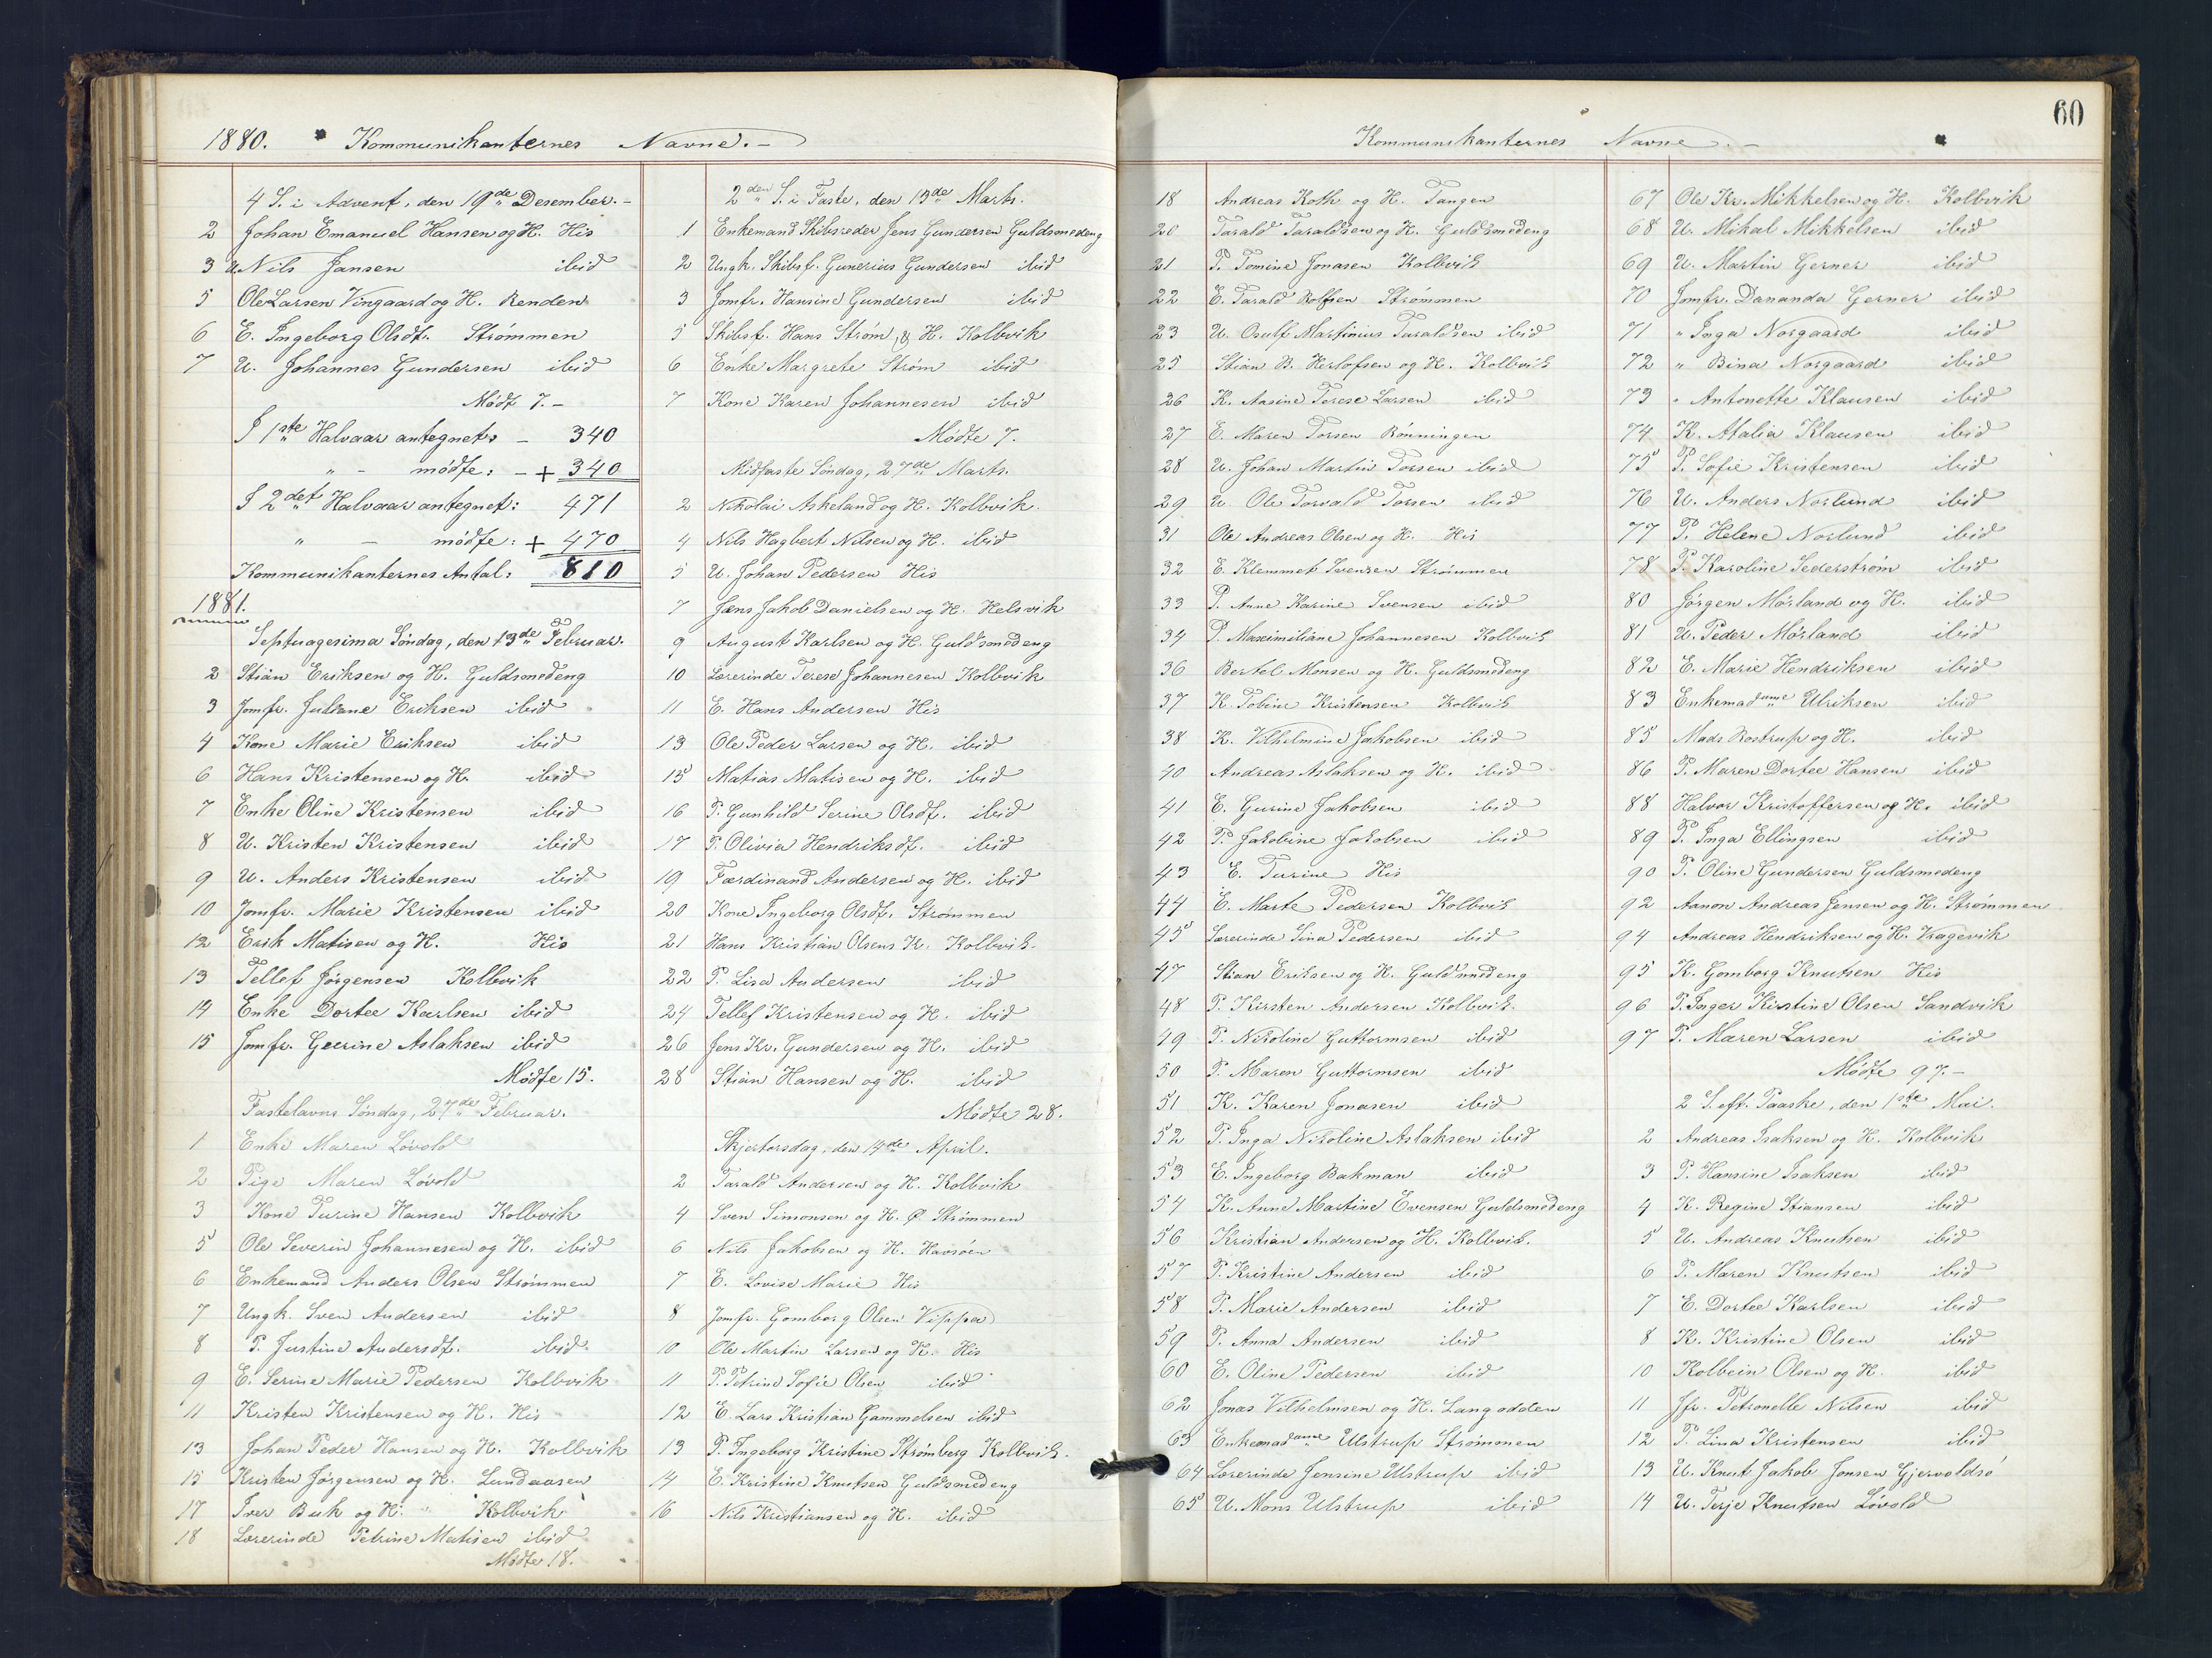 1880. Kommunikanternes Navne. -
4 S. i Advent, den 19de Desember. -
2 Johan Emanuel Hansen og H. His
3 U Nils Jansen ibid
5 Ole Larsen Vingaard og H. Renden
6 E. Ingeborg Olsdt. Strømmen
7 U. Johannes Gundersen ibid
Mødt 7. -
I 1ste Halvaar antegnet: - 340
" - mødte: - + 340
I 2det Halvaar antegnet: 471
" - mødte: + 470
Kommunikanternes Antal: 810
1881.
Septuagesima Søndag, den 13de Februar.
2 Stian Eriksen og H. Guldsmedeng
3 Jomfr. Juliane Eriksen ibid
4 Kone Marie Eriksen ibid
6 Hans Kristensen og H. ibid
7 Enke Oline Kristensen ibid
8 U. Kristen Kristensen ibid
9 U. Anders Kristensen ibid
10 Jomfr. Marie Kristensen ibid
12 Erik Matisen og H. His
13 Tellef Jørgensen Kolbvik
14 Enke Dortee Karlsen ibid
15 Jomfr. Geerine Aslaksen ibid
Mødte 15.
Fastelavns Søndag, 27de Februar.
1 Enke Maren Løvold
2 Pige Maren Løvold
3 Kone Turine Hansen Kolbvik
5 Ole Severin Johannesen og H. ibid
6 Enkemand Anders Olsen Strømmen
7 Ungk. Sven Andersen ibid
8 P. Justine Andersdt. ibid
9 E. Serine Marie Pedersen Kolbvik
11 Kristen Kristensen og H. His
13 Johan Peder Hansen og H. Kolbvik
15 Kristen Jørgensen og H. Lundaasen
17 Iver Buk og H. " Kolbvik
18 Lærerinde Petrine Matisen ibid
Mødte 18.
2den S. i Faste, den 13de Marts.
1 Enkemand Skibsreder Jens Gundersen Guldsmedeng
2 Ungk. Skibsf. Gunerius Gundersen ibid
3 Jomfr. Hansine Gundersen ibid
5 Skibsf. Hans Strøm, & H. Kolbvik
6 Enke Margrete Strøm ibid
7 Kone Karen Johannesen ibid
Mødte 7.
Midfaste Søndag, 27de Marts.
2 Nikolai Askeland og H. Kolbvik.
4 Nils Hagbert Nilsen og H. ibid
5 U. Johan Pedersen His
7 Jæns Jakob Danielsen og H. Helsvik
9 August Karlsen og H. Guldsmedeng
10 Lærerinde Terese Johannesen Kolbvik
11 E. Hans Andersen His
13 Ole Peder Larsen og H. ibid
15 Matias Matisen og H. ibid
16 P. Gunhild Serine Olsdt. ibid
17 P. Olivia Hendriksdt. ibid
19 Færdinand Andersen og H. ibid
20 Kone Ingeborg Olsdt. Strømmen
21 Hans Kristian Olsens K. Kolbvik.
22 P. Lisa Andersen ibid
24 Tellef Kristensen og H. ibid
26 Jens Kr. Gundersen og H. ibid
28 Stian Hansen og H. ibid
Mødte 28.
Skjertorsdag, den 14de April.
2 Tarald Andersen og H. Kolbvik
4 Sven Simonsen og H. Ø. Strømmen
6 Nils Jakobsen og H. Havsøen
7 E. Lovise Marie His
8 Jomfr. Gomborg Olsen Vippa
10 Ole Martin Larsen og H. His
11 P. Petrine Sofie Olsen ibid
12 E. Lars Kristian Gammelsen ibid
13 P. Ingeborg Kristine Strømberg Kolbvik.
14 E. Kristine Knutsen Guldsmedeng
16 Nils Kristiansen og H. ibid
60
Kommunikanternes Navne. -
18 Andreas Koth og H. Tangen
20 Tarald Taraldsen og H. Guldsmedeng
21 P. Tomine Jonasen Kolbvik
22 E. Tarald Rolfsen Strømmen
23 U. Osulf Martinius Taraldsen ibid
25 Stian B. Herlofsen og H. Kolbvik
26 K. Aasine Terese Larsen ibid
27 E. Maren Torsen Rønningen
28 U. Johan Martin Torsen ibid
29 U. Ole Torvald Torsen ibid
31 Ole Andreas Olsen og H. His
32 E. Klemmet Svensen Strømmen
33 P. Anne Karine Svensen ibid
34 P. Maximiliane Johannesen Kolbvik
36 Bertel Monsen og H. Guldsmedeng
37 K. Tobine Kristensen Kolbvik
38 K. Vilhelmine Jakobsen ibid
40 Andreas Aslaksen og H. ibid
41 E. Gurine Jakobsen ibid
42 P. Jakobine Jakobsen ibid
43 E. Turine His
44 E. Marte Pedersen Kolbvik
45 Lærerinde Sina Pedersen ibid
47 Stian Eriksen og H. Guldsmedeng
48 P. Kirsten Andersen Kolbvik.
49 P. Nikoline Guttormsen ibid
50 P. Maren Guttormsen ibid
51 K. Karen Jonasen ibid
52 P. Inga Nikoline Aslaksen ibid
53 E. Ingeborg Bakman ibid
54 K. Anne Martine Evensen Guldsmedeng
56 Kristian Andersen og H. Kolbvik.
57 P. Kristine Andersen ibid
58 P. Marie Andersen ibid
59 P. Anna Andersen ibid
60 E. Oline Pedersen ibid
62 Jonas Vilhelmsen og H. Langodden
63 Enkemadame Ulstrup Strømmen
64 Lærerinde Jensine Ulstrup ibid
65 U. Mons Ulstrup ibid
67 Ole Kr. Mikkelsen og H. Kolbvik
68 U. Mikal Mikkelsen ibid
69 U. Martin Gerner ibid
70 Jomfr. Dananda Gerner ibid
71 " Inga Norgaard ibid
72 " Bina Norgaard ibid
73 " Antonette Klausen ibid
74 K. Atalia Klausen ibid
75 P. Sofie Kristensen ibid
76 U. Anders Norlund ibid
77 P. Helene Norlund ibid
78 P. Karoline Sederstrøm ibid
80 Jørgen Mørland og H. ibid
81 U. Peder Mørland ibid
82 E. Marie Hendriksen ibid
83 Enkemadame Ulriksen ibid
85 Mads Rostrup og H. ibid
86 P. Maren Dortee Hansen ibid
88 Halvor Kristoffersen og H. ibid
89 P. Inga Ellingsen ibid
90 P. Oline Gundersen Guldsmedeng
92 Aanon Andreas Jensen og H. Strømmen
94 Andreas Hendriksen og H. Kragevik
95 K. Gomborg Knutsen His
96 P. Inger Kirstine Olsen Sandvik
97 P. Maren Larsen ibid
Mødte 97. -
2 S. eft. Paaske, den 1ste Mai.
2 Andreas Isaksen og H. Kolbvik
3 P. Hansine Isaksen ibid
4 K. Regine Stiansen ibid
5 U. Andreas Knutsen ibid
6 P. Maren Knutsen ibid
7 E. Dortee Karlsen ibid
8 K. Kristine Olsen ibid
10 Kolbein Olsen og H. ibid
11 Jfr. Petronelle Nilsen ibid
12 P. Lina Kristensen ibid
13 U. Knut Jakob Jonsen Gjervoldsø
14 U. Terje Knutsen Løvold